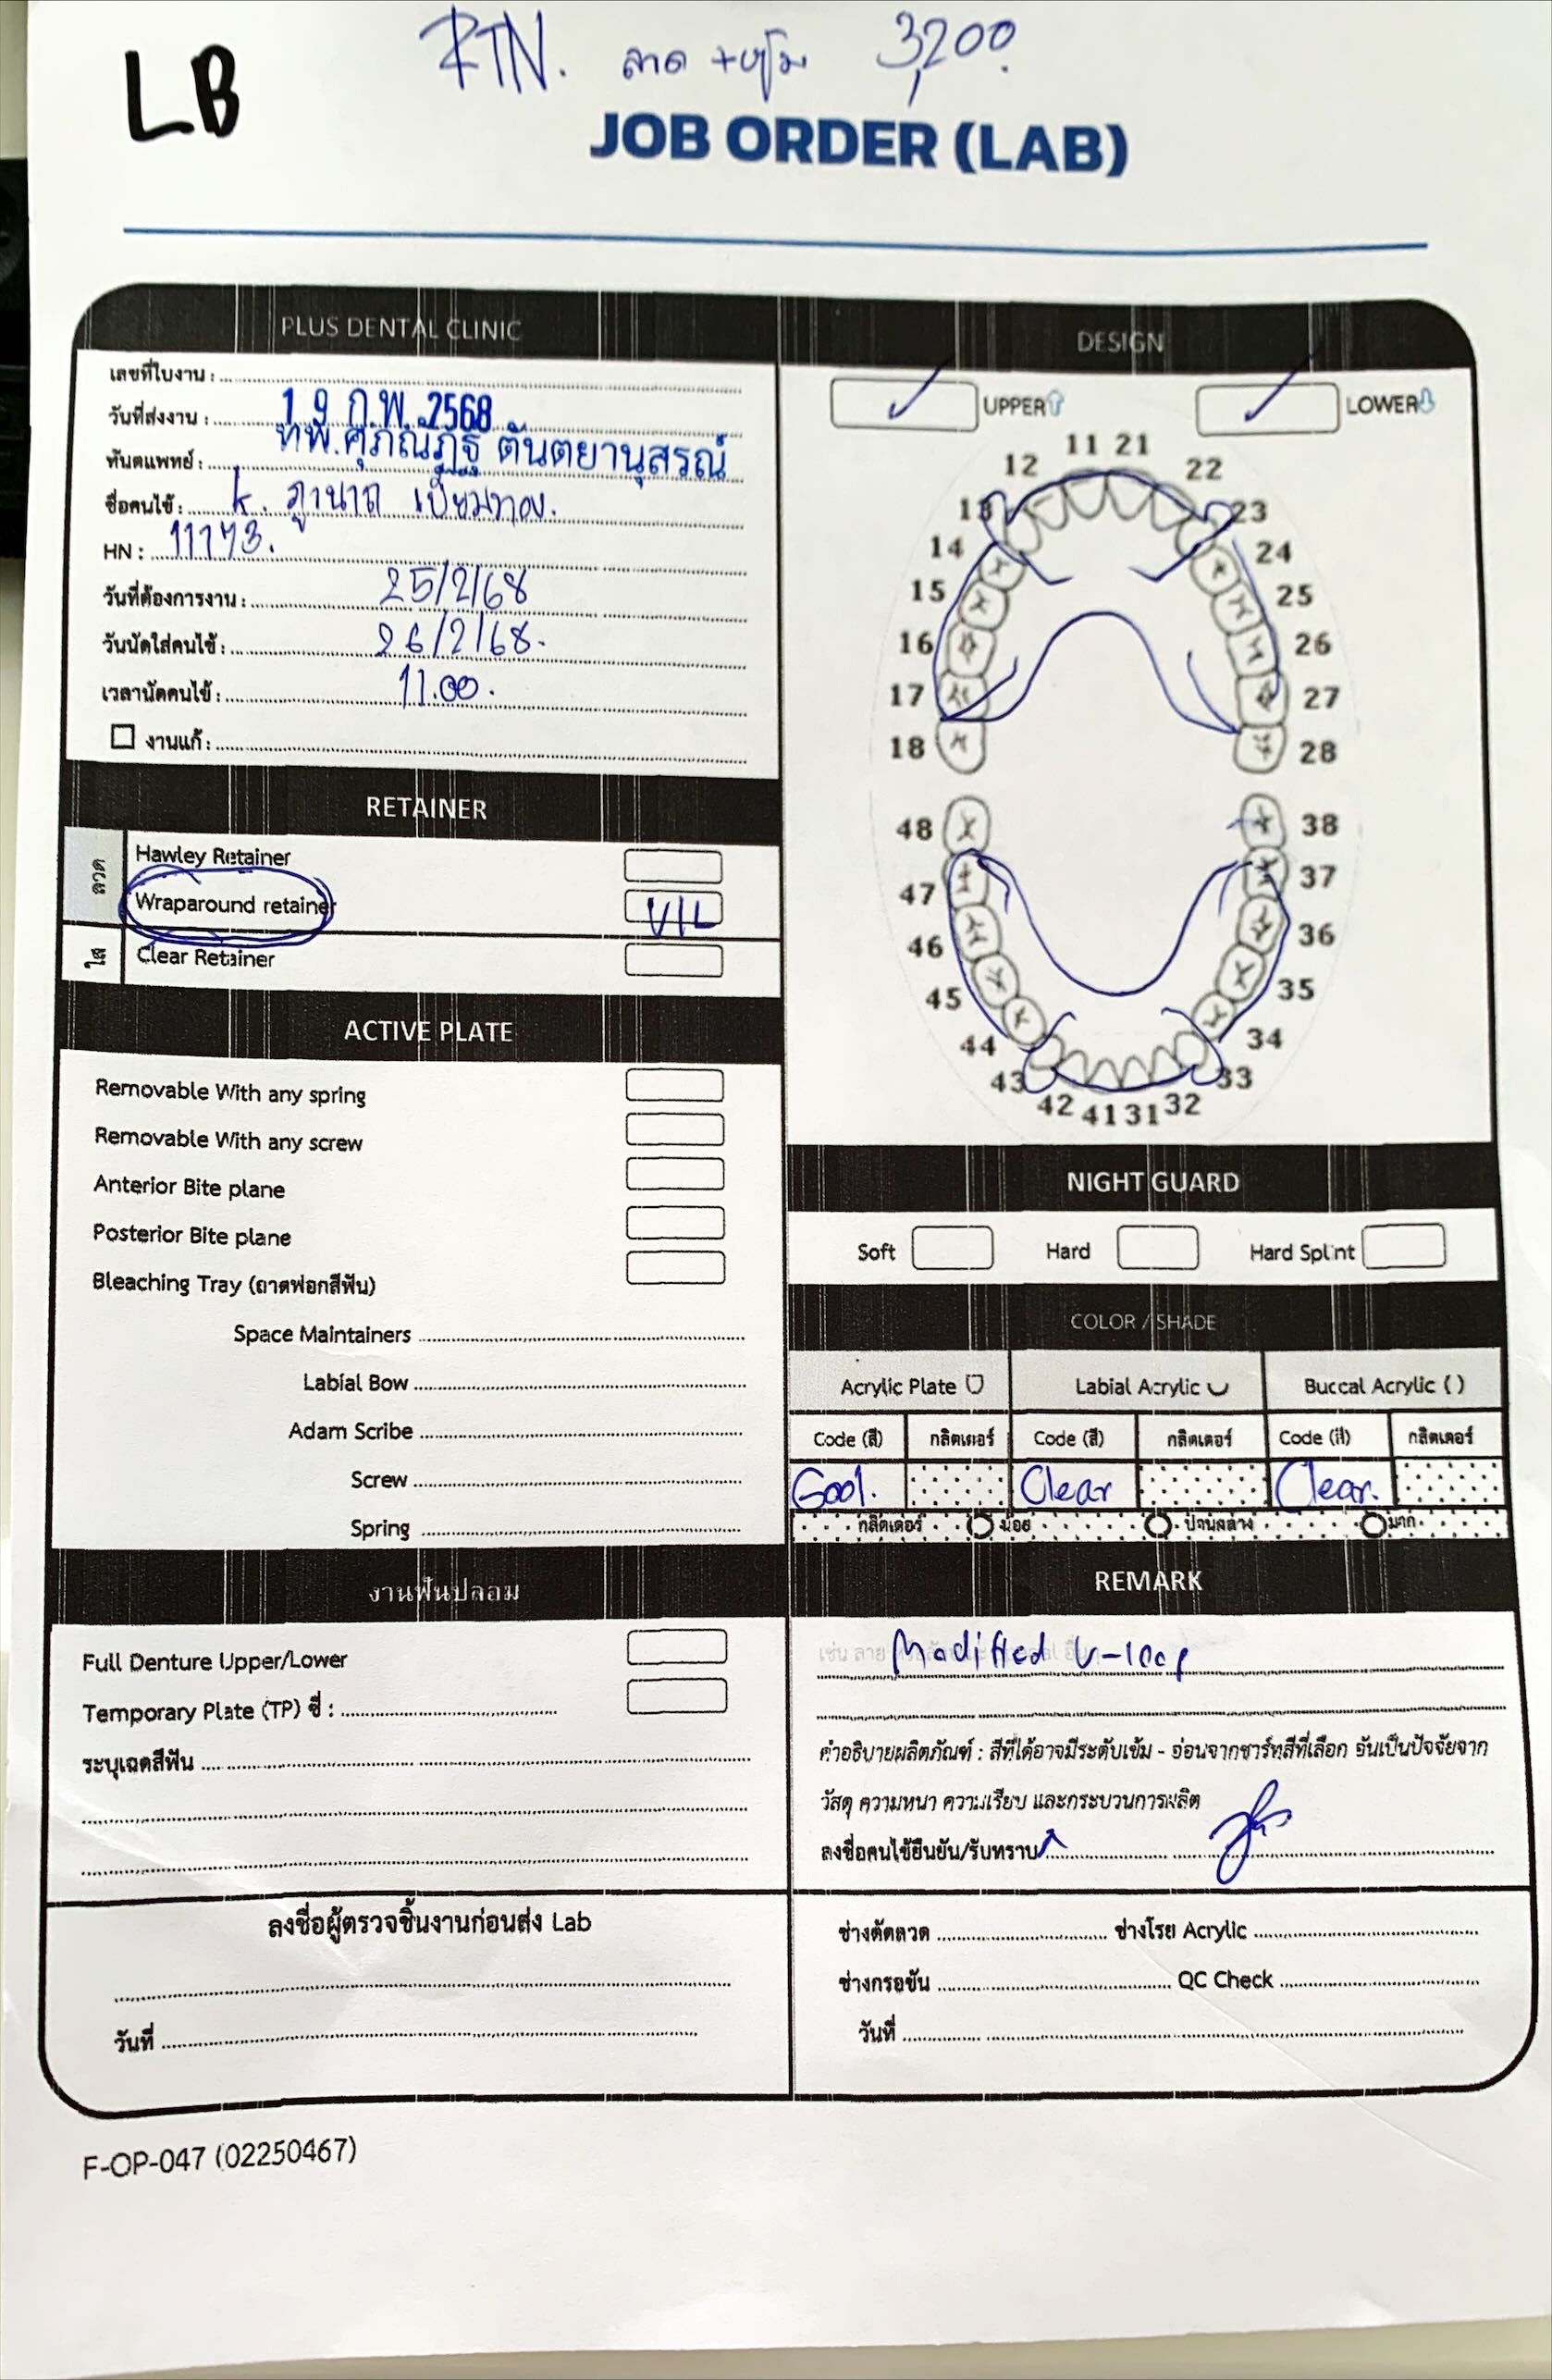 LB
RTN. ลวด +พิมพ์ 3,200.
JOB ORDER (LAB)
PLUS DENTAL CLINIC
เลขที่ใบงาน :
วันที่ส่งงาน : 19 ก.พ. 2568
ทันตแพทย์ : ทพ.ศุภณัฏฐ์ ตันตยานุสรณ์
ชื่อคนไข้ : k. ภูนาถ เปี่ยมทอง.
HN : 11173.
วันที่ต้องการงาน : 25/2/68
วันนัดใส่คนไข้ : 26/2/68.
เวลานัดคนไข้ : 11.00.
งานแก้ :
RETAINER
ลวด
Hawley Retainer
Wraparound retainer U/L
ใส
Clear Retainer
ACTIVE PLATE
Removable With any spring
Removable With any screw
Anterior Bite plane
Posterior Bite plane
Bleaching Tray (ถาดฟอกสีฟัน)
Space Maintainers
Labial Bow
Adam Scribe
Screw
Spring
งานฟันปลอม
Full Denture Upper/Lower
Temporary Plate (TP) ซี่ :
ระบุเฉดสีฟัน
ลงชื่อผู้ตรวจชิ้นงานก่อนส่ง Lab
วันที่
DESIGN
UPPER LOWER
11 21
12 22
13 23
14 24
15 25
16 26
17 27
18 28
48 38
47 37
46 36
45 35
44 34
43 33
42 41 31 32
NIGHT GUARD
Soft Hard Hard Splint
COLOR / SHADE
Acrylic Plate Labial Acrylic Buccal Acrylic ( )
Code (สี) กลิตเตอร์ Code (สี) กลิตเตอร์ Code (สี) กลิตเตอร์
G001. Clear Clear.
กลิตเตอร์ น้อย ปานกลาง มาก
REMARK
Modified U-loop
คำอธิบายผลิตภัณฑ์ : สีที่ได้อาจมีระดับเข้ม - อ่อนจากชาร์ทสีที่เลือก อันเป็นปัจจัยจาก
วัสดุ ความหนา ความเรียบ และกระบวนการผลิต
ลงชื่อคนไข้ยืนยัน/รับทราบ
ช่างดัดลวด ช่างโรย Acrylic
ช่างกรอขัน QC Check
วันที่
F-OP-047 (02250467)